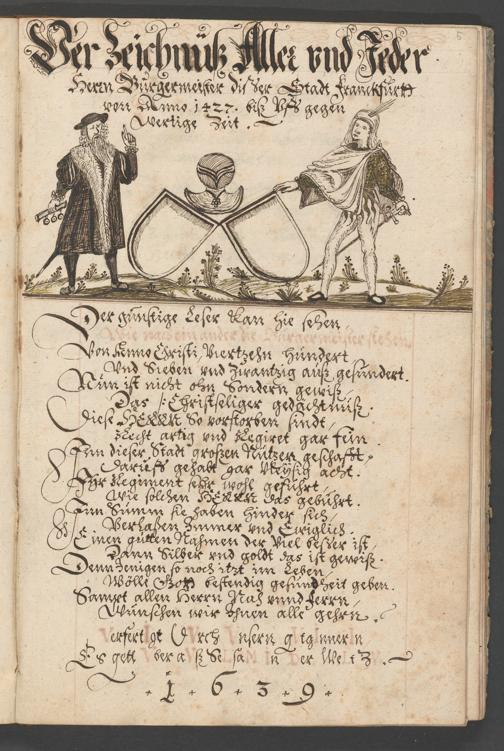 Verzeichnüß Aller vnd Jeder
Herrn Bürgermeister diser Stadt Franckfurtt
von Anno 1427. biß vff gegen
wertige Zeit.
Der günstige Leser kan hie sehen,
Wie nach ein ander die Bürgermeister stehen
Von Anno Christi, Viertzehn hundert
Vnd Sieben vnd zwantzig auß gesundert.
Nun ist nicht ohn Sondern gewiß,
Das Christseliger gedächtnüß.
Diese HERRN So vorstorben sindt,
Recht artig vnd Regiret gar fein
Zum dieser Stadt großen Nutzen geschafft,
Darauff gehabt gar vleysig acht.
Ihr Regiment sehr wohl geführt,
Wie solchen HERRN das gebührt.
Zum Summ sie haben hinder sich
Verlaßen Immer vnd Ewiglich.
Einen gutten Nahmen der viel besser ist,
Dann Silber vnd goldt das ist gewiß.
Denn Jenigen so noch itzt im Leben
Wölle Gott bestendig gesundtheit geben.
Sampt allen Herrn Rath vnnd Herrn,
Wünschen wir ihnen alle gehrn.
Verfertigt
Es gett vber auß Selsam in der Weltz.
1639